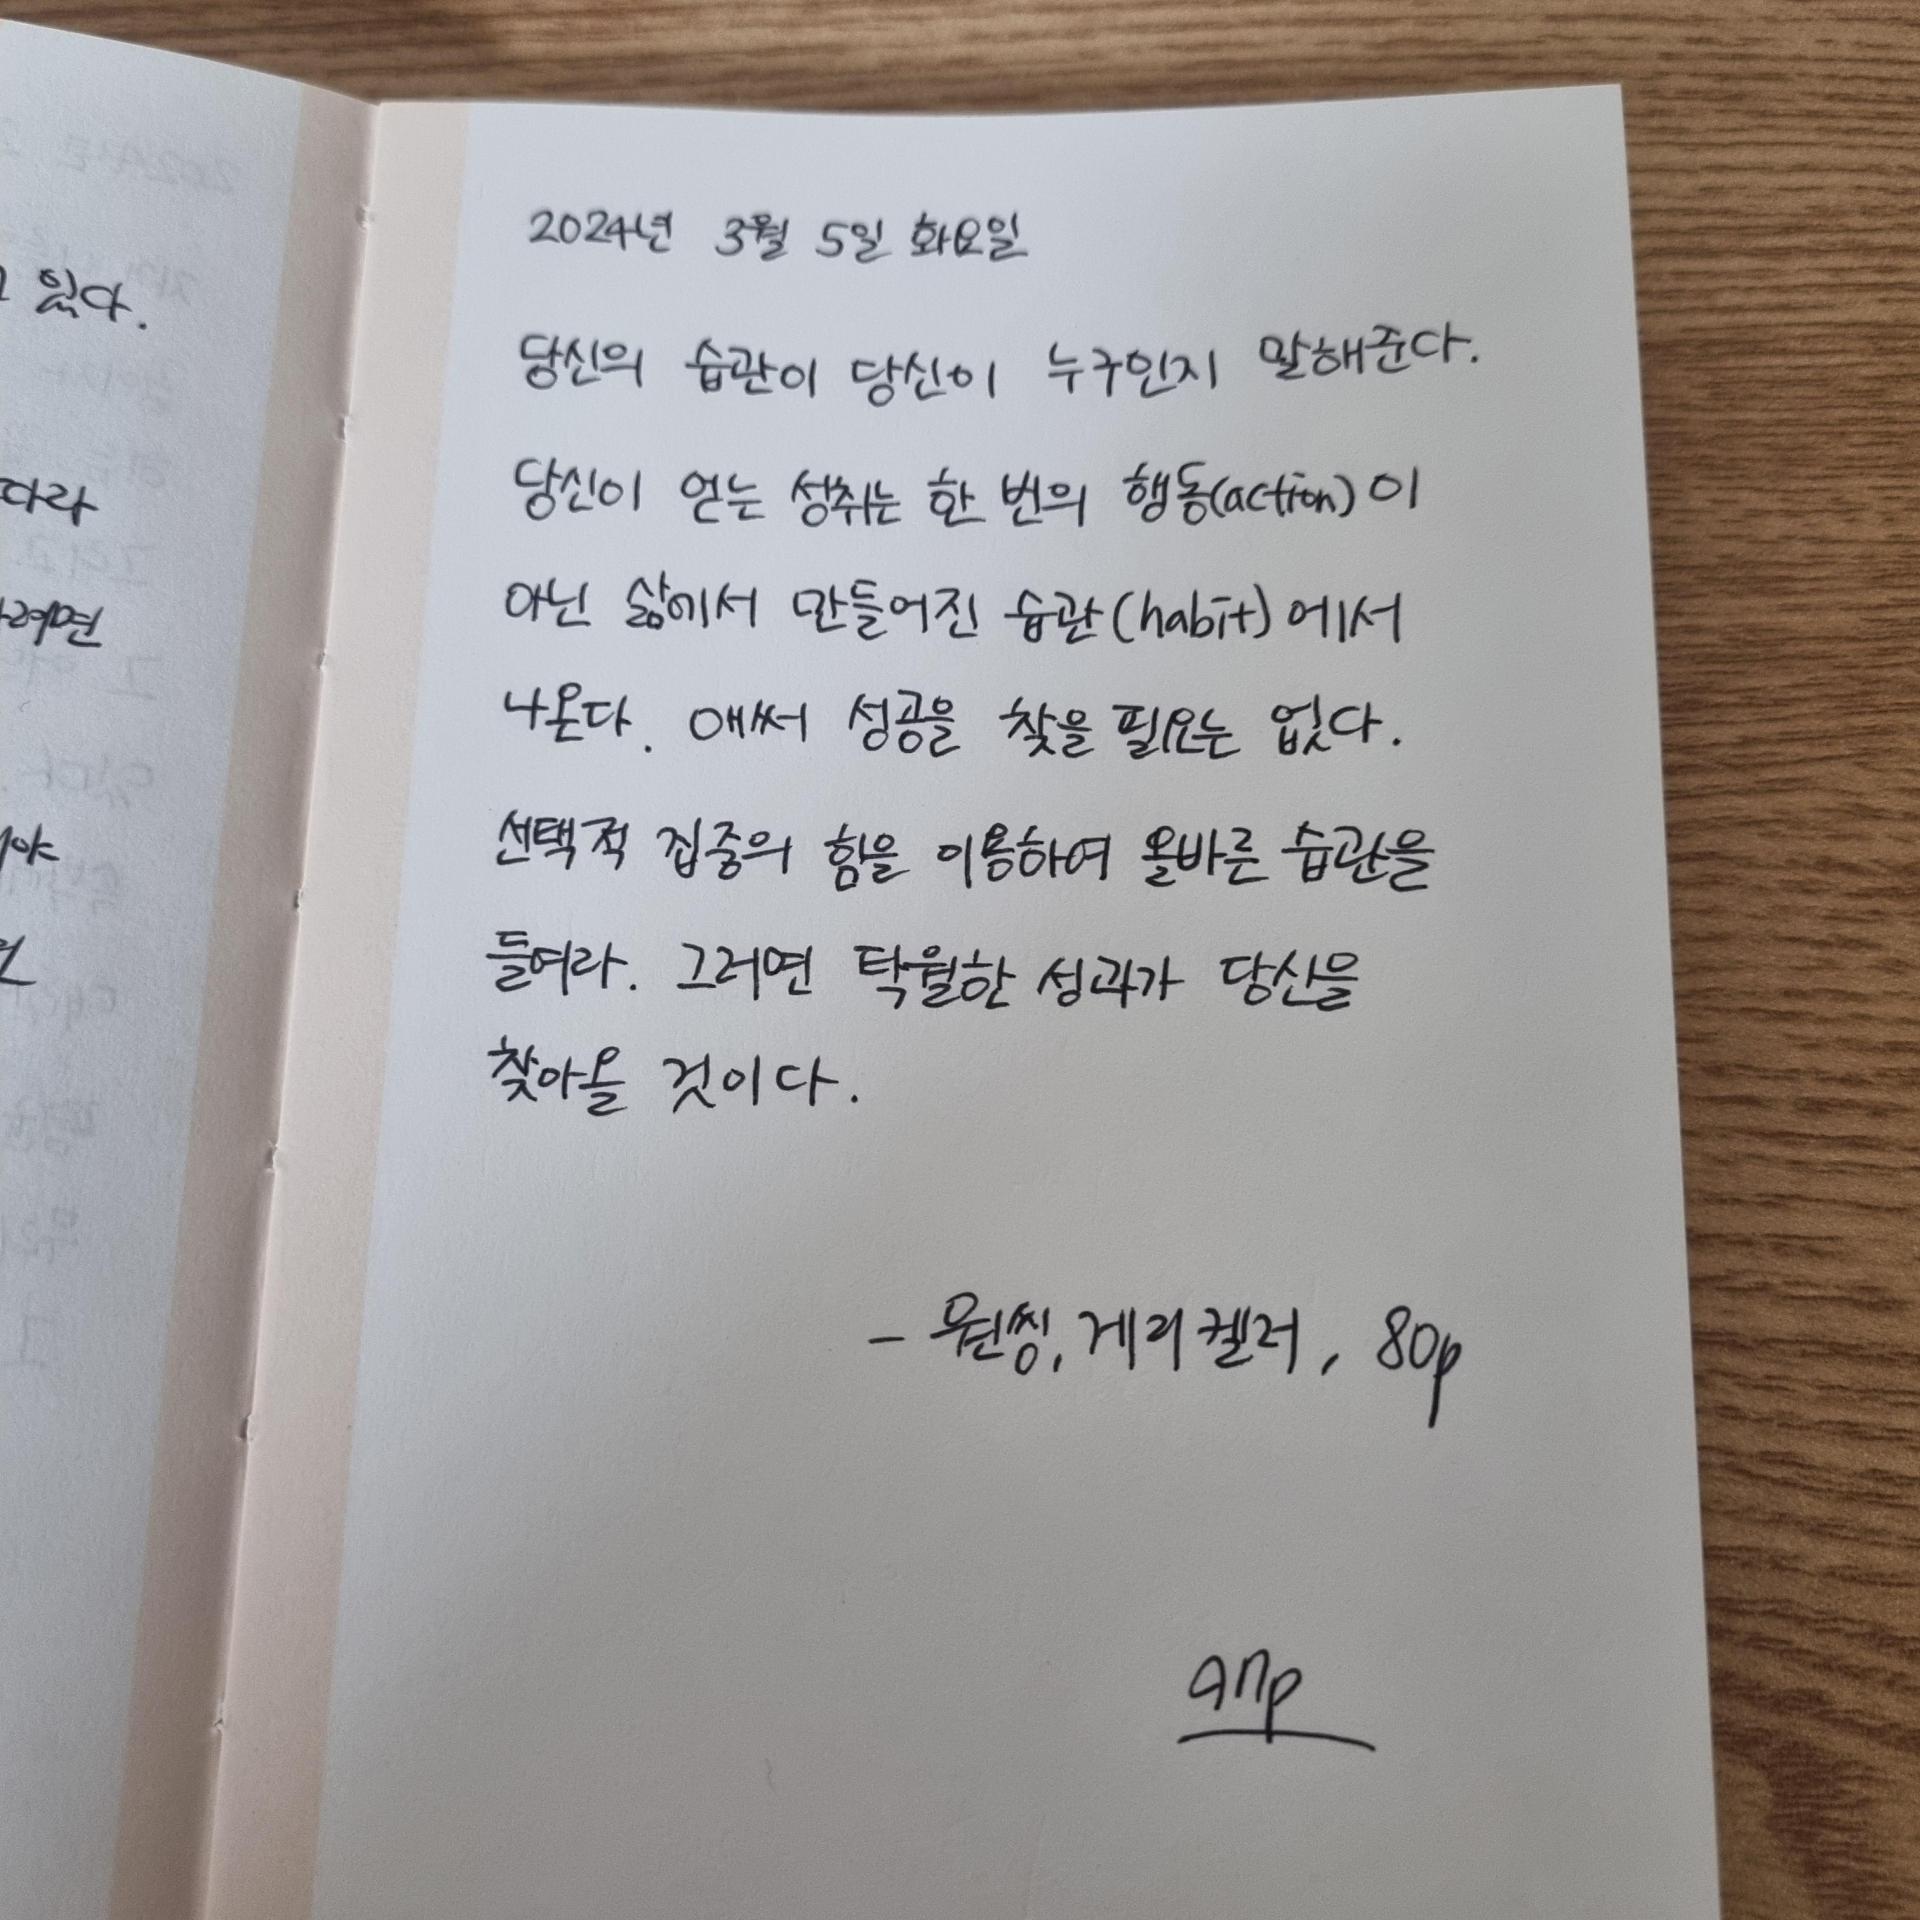 있다.
따라
2024년 3월 5일 화요일
당신의 습관이 당신이 누구인지 말해준다.
당신이 얻는 성취는 한 번의 행동(action)이
아닌 삶에서 만들어진 습관(habit)에서
나온다. 애써 성공을 찾을 필요는 없다.
선택적 집중의 힘을 이용하여 올바른 습관을
들여라. 그러면 탁월한 성과가 당신을
찾아올 것이다.
- 원씽, 게리 켈러, 80p
anp